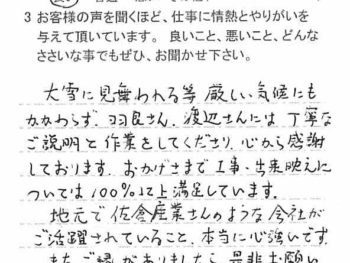 3 お客様の声を聞くほど、仕事に情熱とやりがいを
与えて頂いています。 良いこと、悪いこと、どんな
ささいな事でもぜひ、お聞かせ下さい。
大雪に見舞われる等 厳しい気候にも
かかわらず、羽良さん、渡辺さんには 丁寧な
ご説明と作業をしてくださり、心から感謝
しております。おかげさまで工事・出来映えに
ついては 100%以上満足しています。
地元で佐倉産業さんのような会社が
ご活躍されていること、本当に心強いです。
またご縁がありましたら 是非お願い